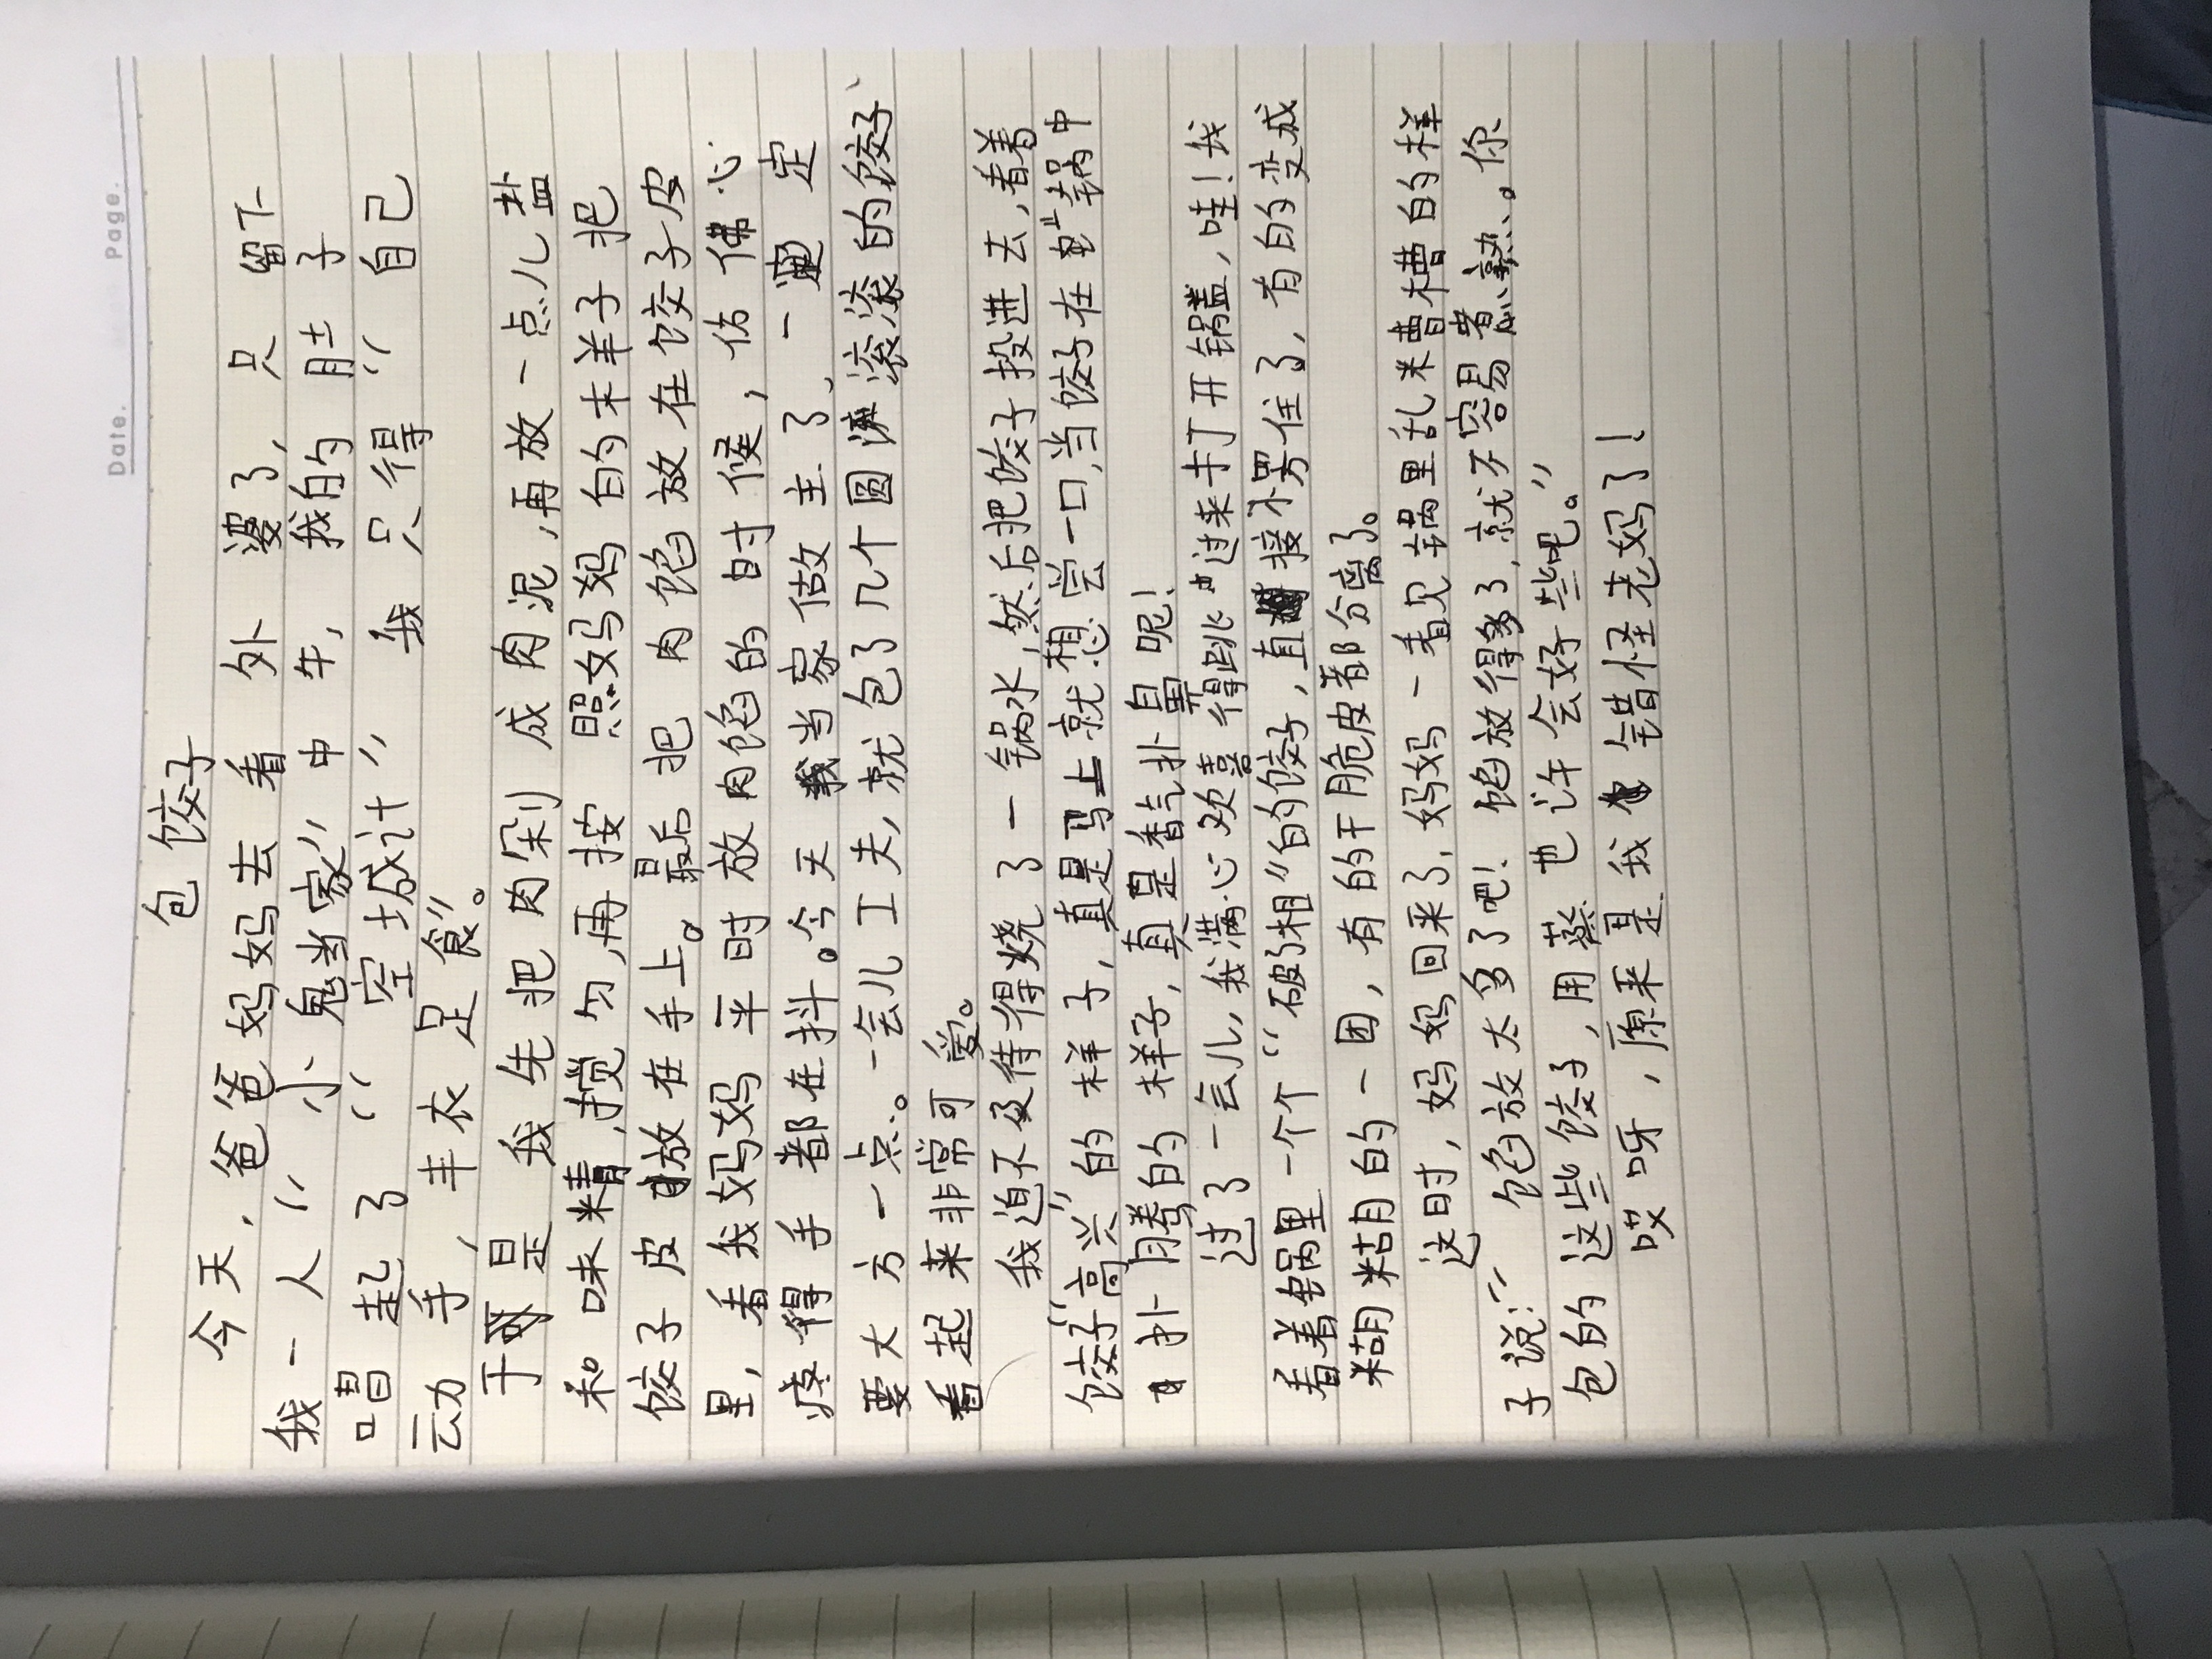 Date.
Page.
包饺子
今天,爸爸妈妈去看外婆了,只留下
我一人“小鬼当家”中午,我的肚子
唱起了“空城计”我只得“自己
动手,丰衣足食”。
于是我先把肉剁成肉泥,再放一点儿盐
和味精,搅匀,再按照妈妈的样子把
饺子皮放在手上。最后把肉馅放在饺子皮
里,看我妈妈平时放肉馅的时候,仿佛心
疼得手都在抖。今天我当家做主了,一定
要大方一点。一会儿工夫,就包了几个圆滚滚的饺子、
看起来非常可爱。
我迫不及待得烧了一锅水,然后把饺子投进去,看着
饺子“高兴”的样子,真是马上就想尝一口,当饺子在锅中
扑腾的样子,真是香气扑鼻呢!
过了一会儿,我满心欢喜得跳过来打开锅盖,哇!我
看着锅里一个个“破相”的饺子,直接愣住了,有的变成
糊糊的一团,有的干脆皮都分离了。
这时,妈妈回来了,妈妈一看见锅里乱糟糟的样
子说:“馅放太多了吧!馅放得多了,就不容易煮熟。你
包的这些饺子,用蒸也许会好些吧。”
哎呀,原来是我错怪老妈了!